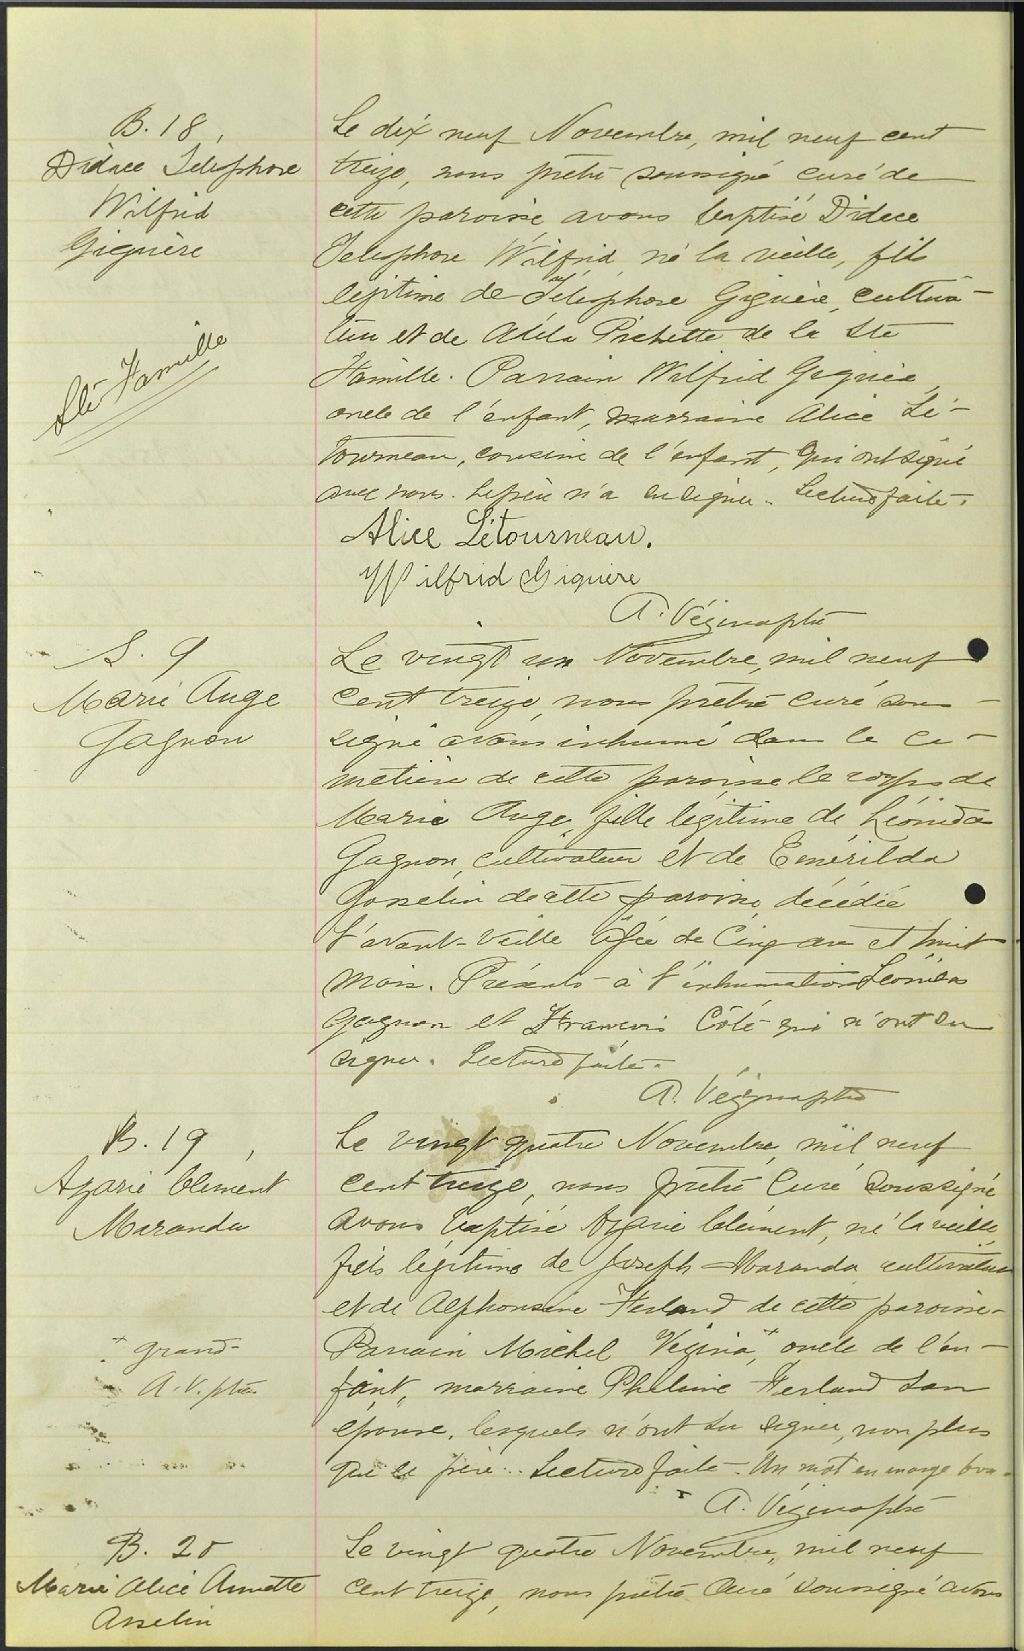 B. 18,
Didace Télesphore
Wilfrid
Giguère
Ste Famille
Le dix neuf Novembre, mil neuf cent
treize, nous prêtre soussigné curé de
cette paroisse avons baptisé Didace
Telesphore Wilfrid, né la veille, fils
légitime de Télesphore Giguère, cultiva-
teur et de de la Ste
Famille. Parrain Wilfrid Giguère,
oncle de l'enfant, marraine Alice Lé-
tourneau, cousine de l'enfant, qui ont signé
avec nous. Le père n'a su signer. Lecture faite.
Alice Létourneau.
Wilfrid Giguère
A. Vézina ptre
S. 9
Marie Ange
Gagnon
Le vingt un Novembre, mil neuf
cent treize, nous prêtre curé sous-
signé avons inhumé dans le ci-
metière de cette paroisse le corps de
Marie Ange, fille légitime de Léonidas
Gagnon, cultivateur et de Emérilda
Gosselin de cette paroisse, décédée
l'avant-veille âgée de cinq ans et huit
mois. Présents à l'inhumation Léonidas
Gagnon et François Côté qui n'ont su
signer. Lecture faite.
A. Vézina ptre
B. 19,
Azarie Clément
Maranda
Le vingt quatre Novembre, mil neuf
cent treize, nous prêtre curé soussigné
avons baptisé Azarie Clément, né la veille,
fils légitime de Joseph Maranda cultivateur
et de Alphonsine Ferland de cette paroisse.
+ grand-
A. V. ptre
Parrain Michel Vézina +, oncle de l'en-
fant, marraine Philomène Ferland son
épouse, lesquels n'ont su signer, non plus
que le père. Lecture faite. Un mot en marge bon.
A. Vézina ptre
B. 20
Marie Alice Annette
Asselin
Le vingt quatre Novembre, mil neuf
cent treize, nous prêtre curé soussigné avons